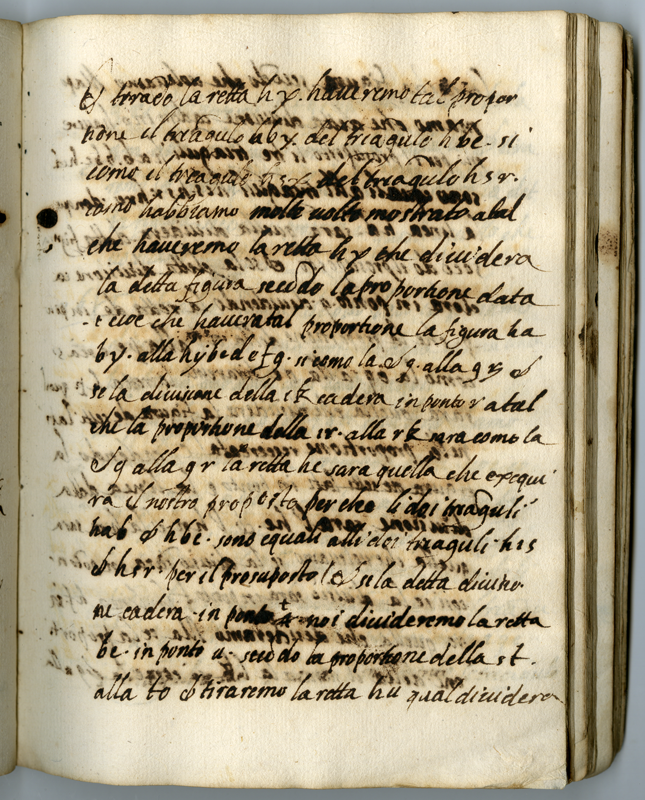 & tirado la retta h y. haveremo tal propor
tione il triãgulo a b y. del triãgulo h b c. si
como il triãgulo h s x del triãgulo h s r.
como habbiamo molte volte mostrato atal
che haveremo la retta h y che dividera
la detta figura secõdo la proportione data
cioe che havera tal proportione la figura h a
b y. alla h y b e d e f g. si como la & q. alla q r &
se la divisione della i k cadera in ponto r atal
che la proportione della i r. alla r k sara como la
& q alla q r la retta h c sara quella che exequi
ra il nostro proposito perche li doi triãguli
h a b & h b c. sono equali alli doi triaguli h i s
& h s r per il prosuposto & se la detta divisio
ne cadera in ponto t noi divideremo la retta
b c. in ponto u. secõdo la proportione della s t.
alla t o & tiraremo la retta h u qual dividera